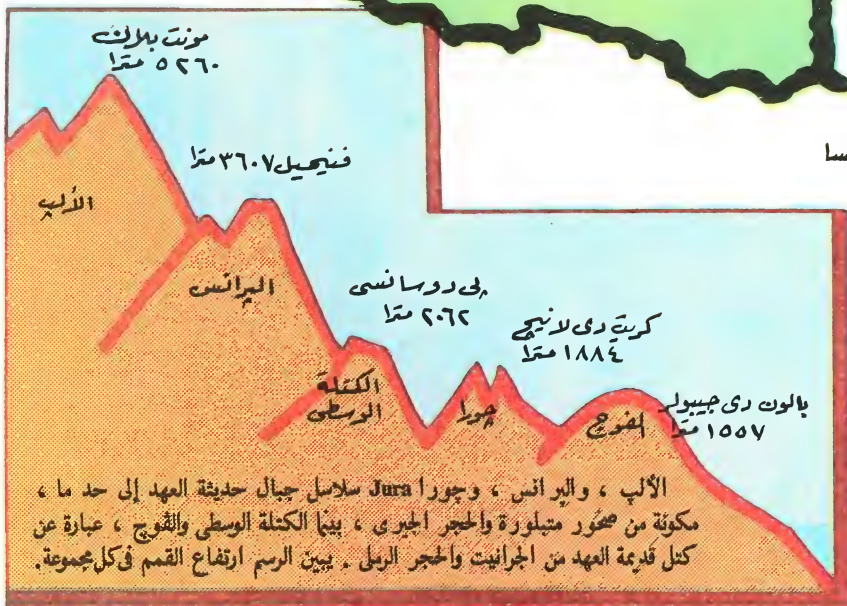 مونت بلانك
٥٢٦٠ مترا
فنيميل ٣٦٠٧ مترا
سا
الألب
البرانس
پى دو سانسى
٢٠٦٢ مترا
كريت دى لانيج
١٨٨٤ مترا
الكتلة
الوسطى
چورا
الڤوچ
بالون دى جيبولر
١٥٥٧ مترا
الألپ ، والبرانس ، وچورا Jura سلاسل جبال حديثة العهد إلى حد ما ،
مكونة من صخور متبلورة والحجر الجيرى ، بينما الكتلة الوسطى والڤوچ ، عبارة عن
كتل قديمة العهد من الجرانيت والحجر الرملى . يبين الرسم ارتفاع القمم فى كل مجموعة.